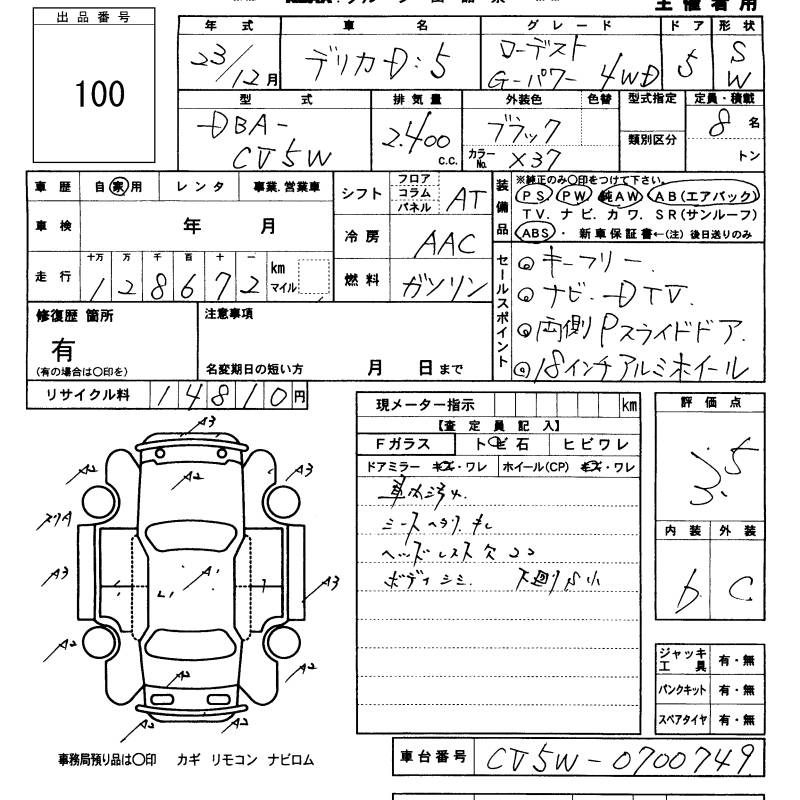 出品番号
100
主催者用
年式 車名 グレード ドア 形状
23/12月 デリカD:5 ローデスト G-パワー 4WD 5 SW
型式 排気量 外装色 色替 型式指定 定員・積載
DBA-CV5W 2.400 c.c. ブラック 類別区分 8名
カラーNo. X37 トン
車歴 自家用 レンタ 事業.営業車
車検 年 月
走行 十万 万 千 百 十 一 km マイル
128672
シフト フロア コラム パネル AT
冷房 AAC
燃料 ガソリン
装備品
※純正のみ○印をつけて下さい。
PS PW 純AW AB(エアバック)
TV.ナビ.カワ.SR(サンルーフ)
ABS・新車保証書←(注)後日送りのみ
セールスポイント
◎キーフリー.
◎ナビ.DTV.
◎両側Pスライドドア.
◎18インチアルミホイール
修復歴 箇所
有
(有の場合は○印を)
注意事項
名変期日の短い方 月 日まで
リサイクル料 14810円
現メーター指示 km
【査定員記入】
Fガラス トビ石 ヒビワレ
ドアミラー キズ・ワレ ホイール(CP) キズ・ワレ
車内汚れ
シートヘタリ キレ
ヘッドレスト欠ココ
ボディシミ. 下廻りS小
評価点
3.5
内装 外装
b C
A3
A2 A2 A3
A3 A1 A3
A2 A2
A2
A2 A2
ジャッキ工具 有・無
パンクキット 有・無
スペアタイヤ 有・無
事務局預り品は○印 カギ リモコン ナビロム
車台番号 CV5W-0700749